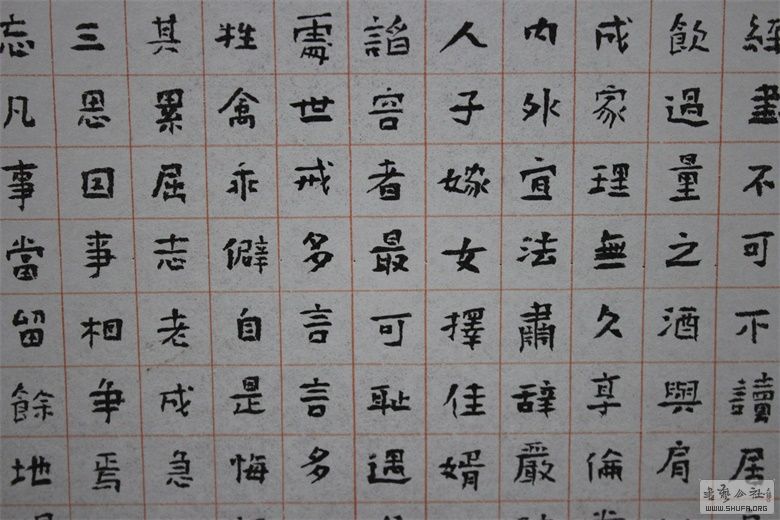 經書不可不讀居
飲過量之酒與肩
成家理無久享倫
內外宜法肅辞嚴
人子嫁女擇佳婿
諂容者最可恥遇
處世戒多言言多
牲禽乖僻自是悔
其累屈志老成急
三思因事相争焉
忘凡事當留餘地
書藝公社
WWW.SHUFA.ORG